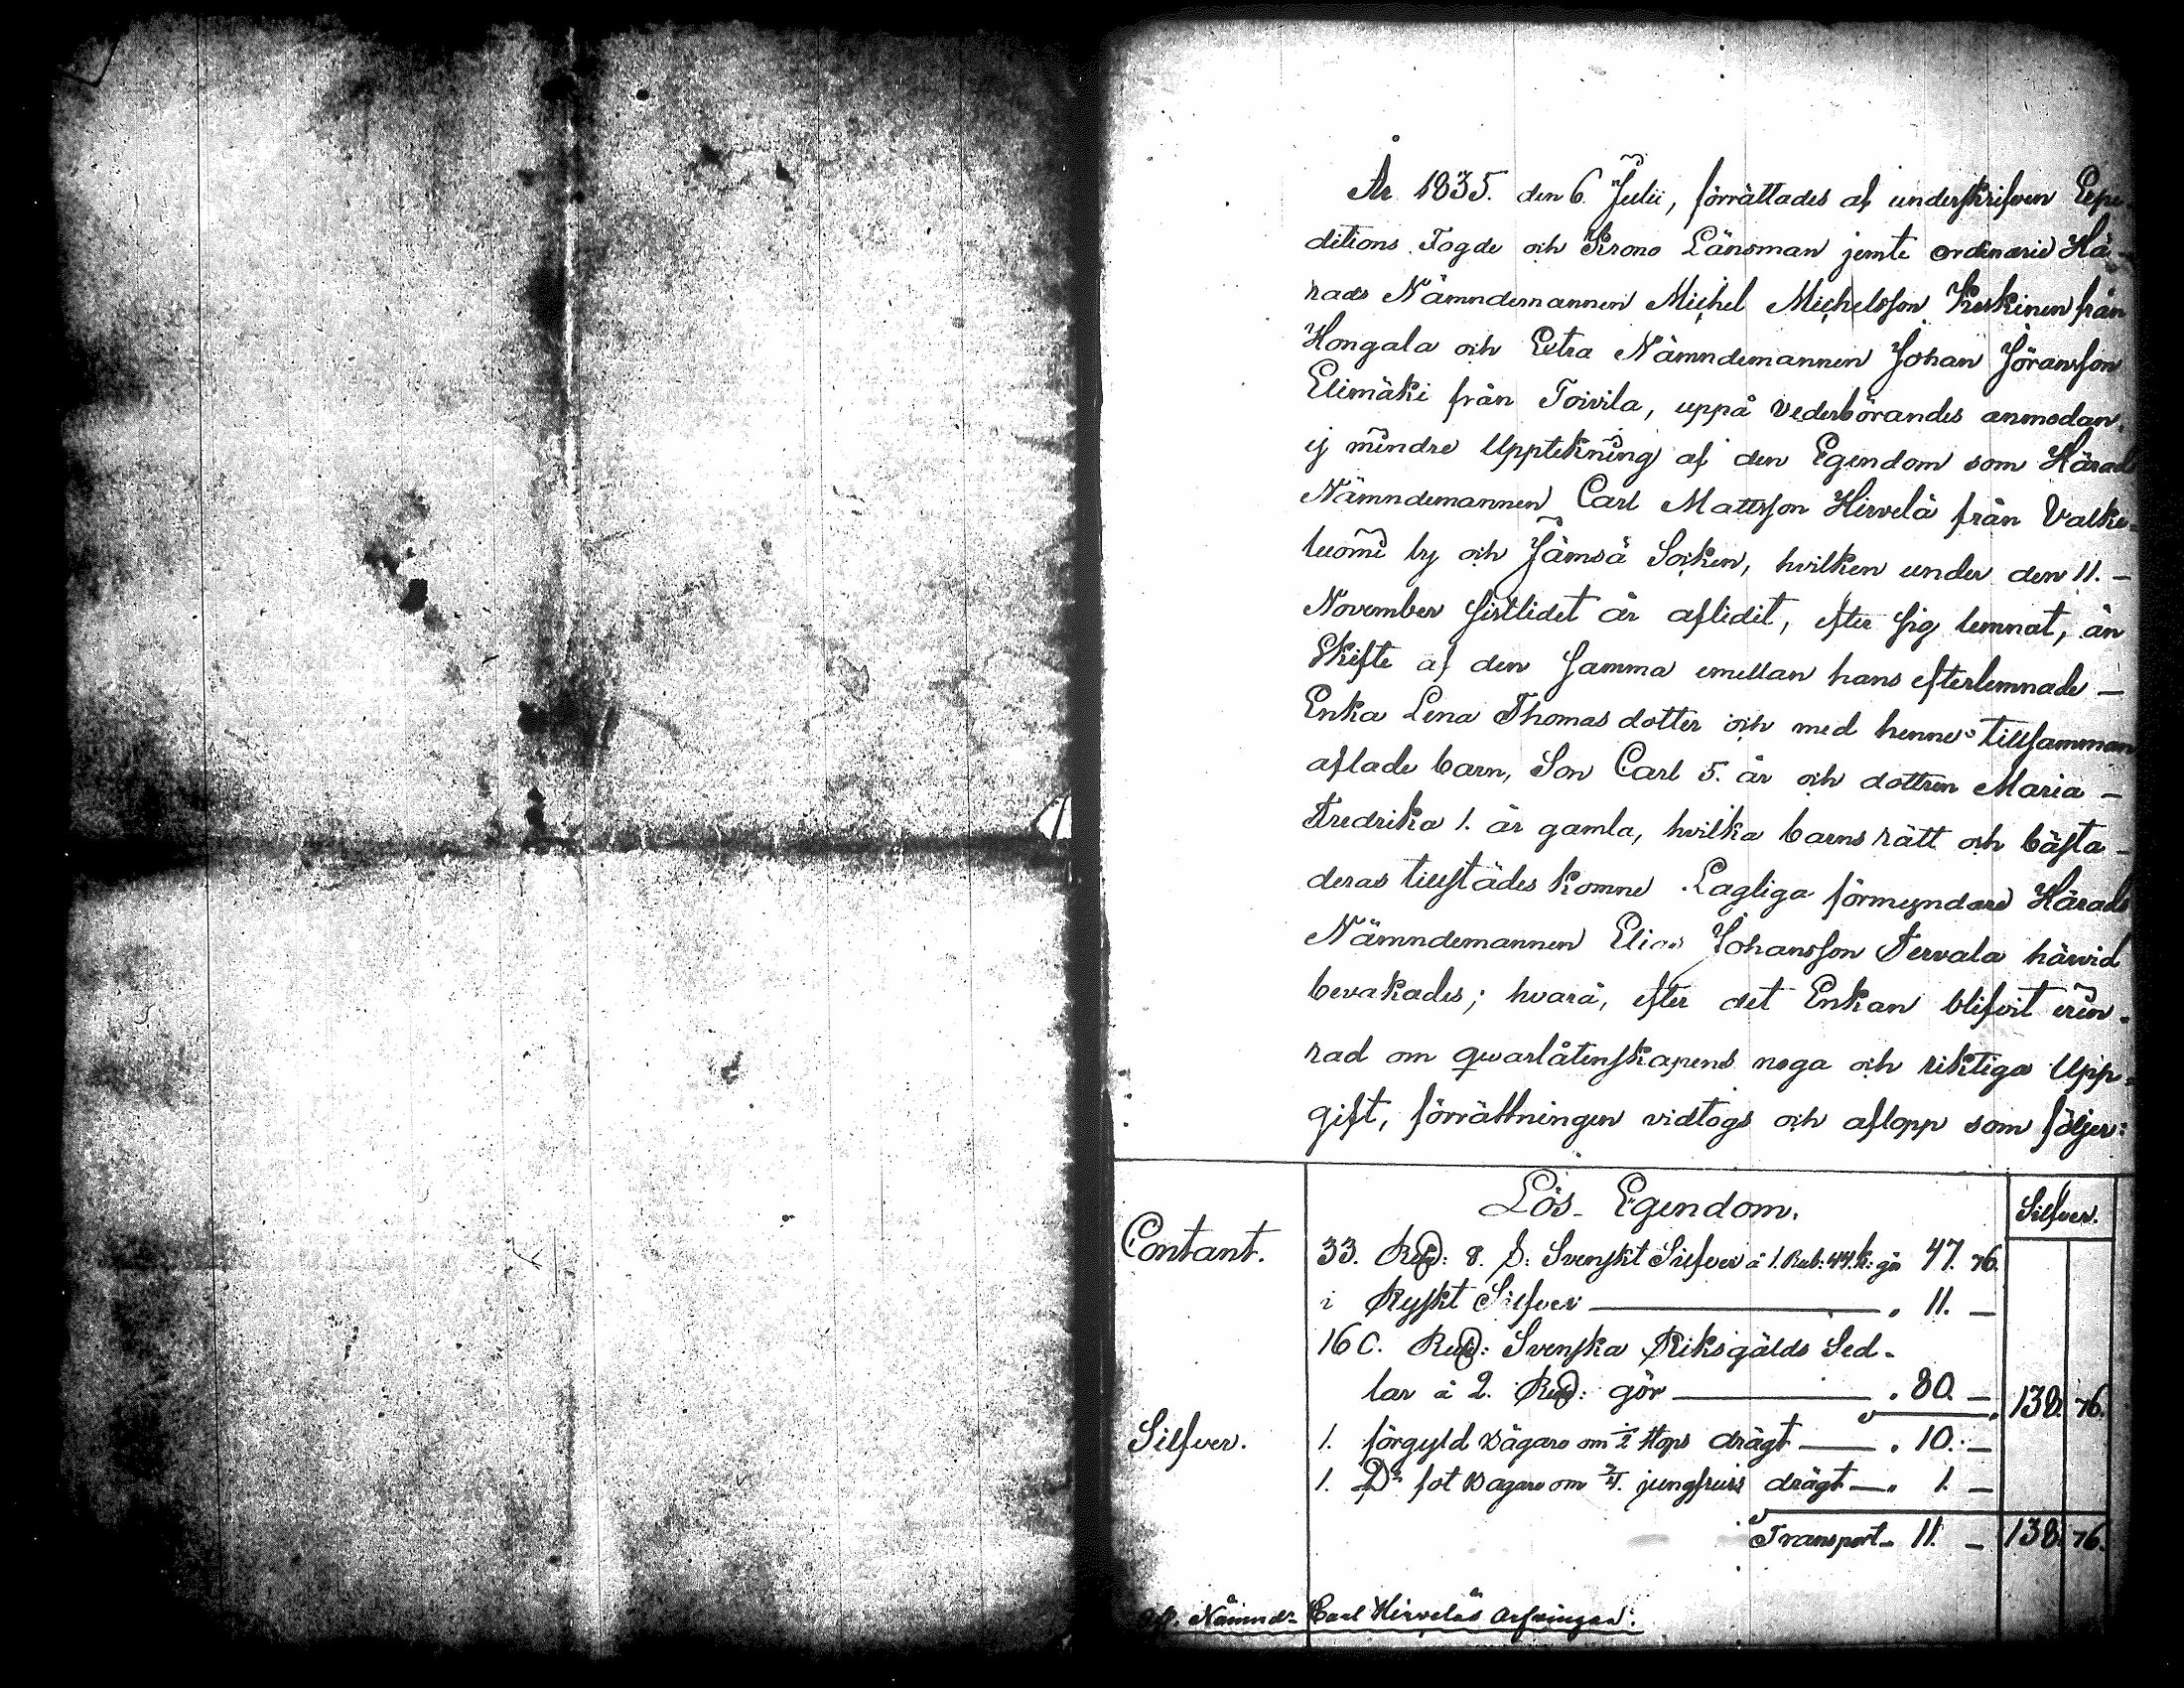 År 1835. den 6. Julii, förrättades af underskrifven Expe-
ditions Fogde och Krono Länsman jemte ordinarie Hä-
rads Nämndemannen Michel Michelsson Keskinen från
Hongala och Extra Nämndemannen Johan Jöransson
Elimäki från Toivila, uppå vederbörandes anmodan,
ej mindre Uppteckning af den Egendom som Härads
Nämndemannen Carl Mattsson Hirvelä från Valke-
luomi by och Jämsä Socken, hvilken under den 11. —
November sistlidet år aflidit, efter sig lemnat, än
Skifte af den samma emellan hans efterlemnade —
Enka Lena Thomas dotter och med henne tillsamman
aflade barn, Son Carl 5. år och dottren Maria —
Fredrika 1. år gamla, hvilka barns rätt och bästa —
deras tillstädes komne Lagliga förmyndare Härads
Nämndemannen Elias Johansson Tervala härvid
bevakades; hvarå, efter det Enkan blifvit erin-
rad om qvarlåtenskapens noga och riktiga Upp-
gift, förrättningen vidtogs och aflopp som följer:
Lös Egendom. Silfver.
Contant. 33. Rd: 8. s: Svenskt Silfver à 1. Rub: 44. k: gör 47. 76.
i Ryskt Silfver — " 11. —
160. Rd: Svenska Riksgälds Sed-
lar à 2. Rd: gör — " 80. — 138. 76.
Silfver. 1. förgyld Bägare om ½ stops drägt — " 10. —
1. Do fot Bägare om ¾ jungfrurs drägt — " 1. —
Transport 11. — 138. 76.
Afl. Nämnd: Carl Hirveläs Arfvingar.